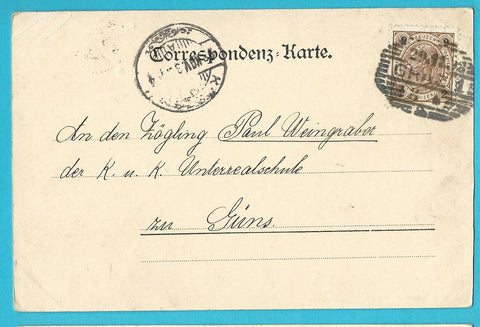 Correspondenz-Karte.
An den Zögling Paul Weingraber
der K. u. K. Unterrealschule
zu Güns.